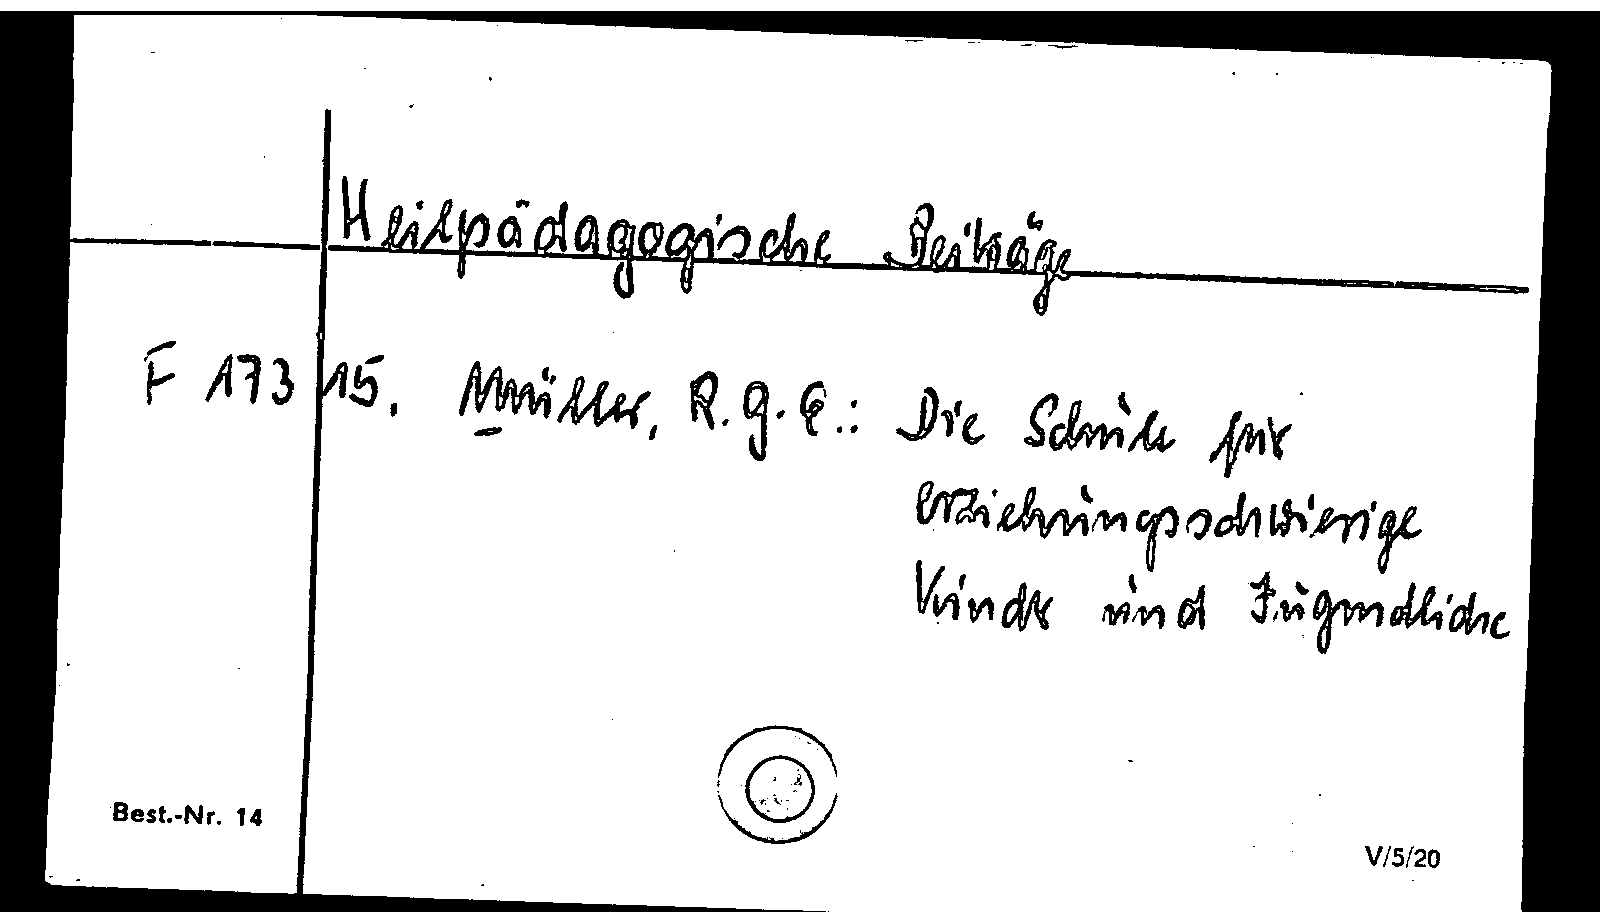 Heilpädagogische Beiträge
F 173 15. Müller, R.G.E.: Die Schule für
erziehungsschwierige
Kinder und Jugendliche
Best.-Nr. 14
V/5/20